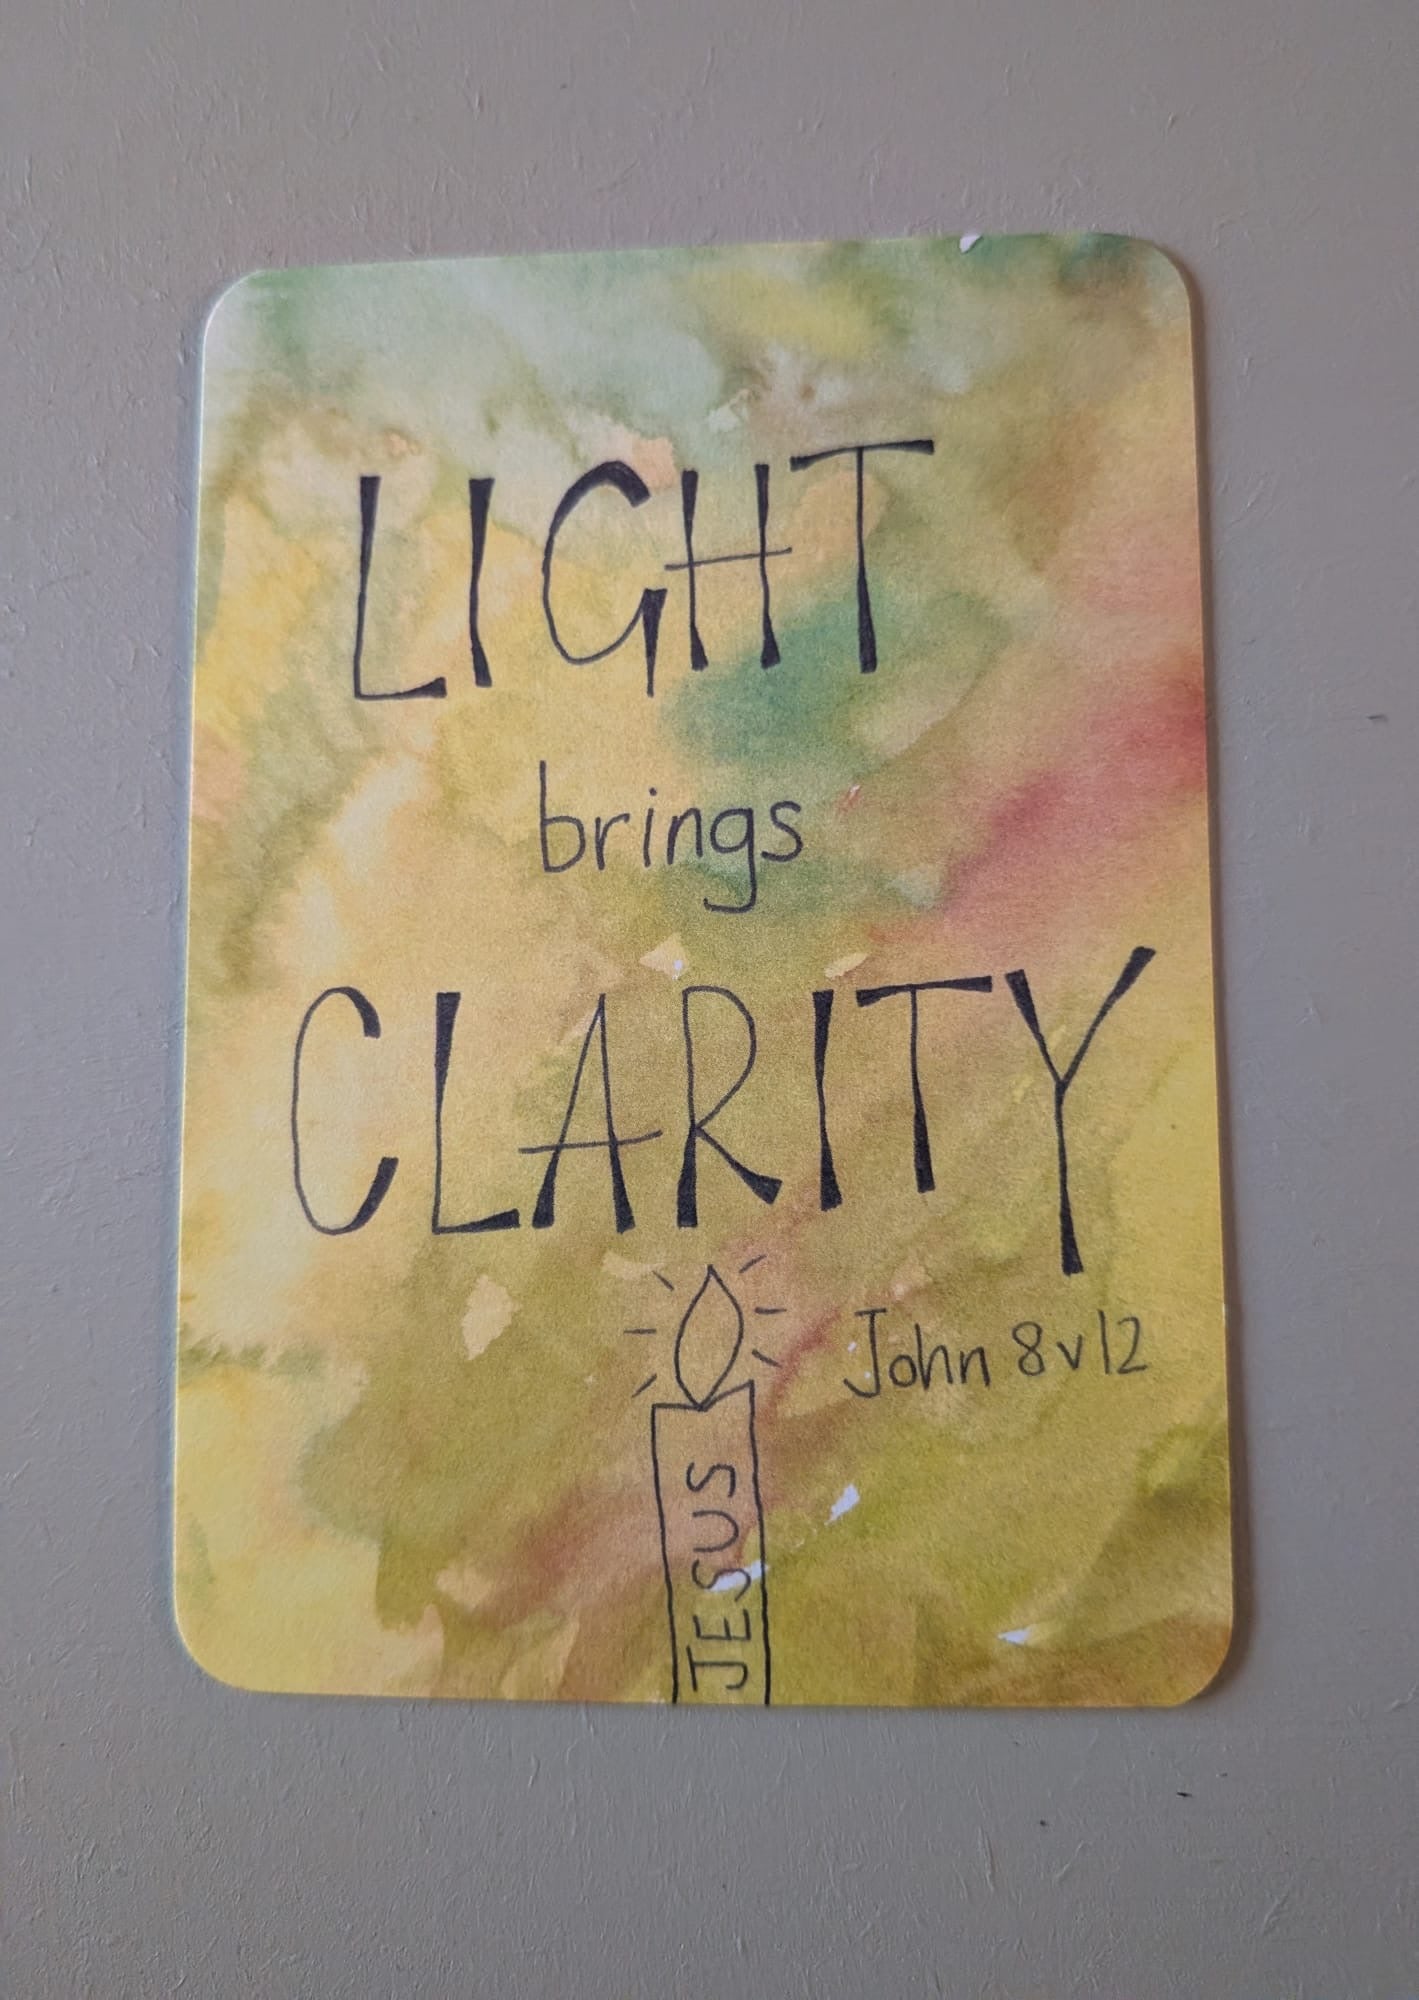 LIGHT
brings
CLARITY
John 8v12
JESUS